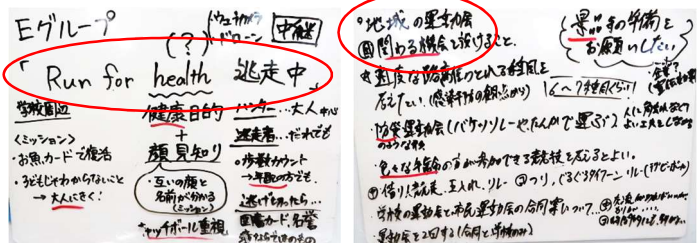 Eグループ
ウェアカメラ
ドローン
中継
(?)
「Run for health 逃走中」
学校周辺
<ミッション>
・お魚カードで復活
・子どもじゃわからないこと
→大人にきく!
健康目的
+
顔見知り
・互いの顔と
名前が分かる
(ミッション)
キャッチボール重視
ハンター…大人中心
逃走者…だれでも
・歩数カウント
→年配の方でも
逃げきったら…
図書カード、名誉
・地域の運動会
関わる機会を設けること。
景品等の準備を
お願いしたい
適度な距離がとれる種目を
考えたい。(感染予防の観点から)
6〜7種目ぐらい
防災運動会(バケツリレーや、たんかで運ぶ)
のような物
色々な年齢の方が参加できる競技を考えるとよい。
借り人競走、玉入れ、リレー
つり、ぐるぐるタイフーン・リレー
学校の運動会と市民運動会の合同案について…
運動会を2回する(合同と学校のみ)